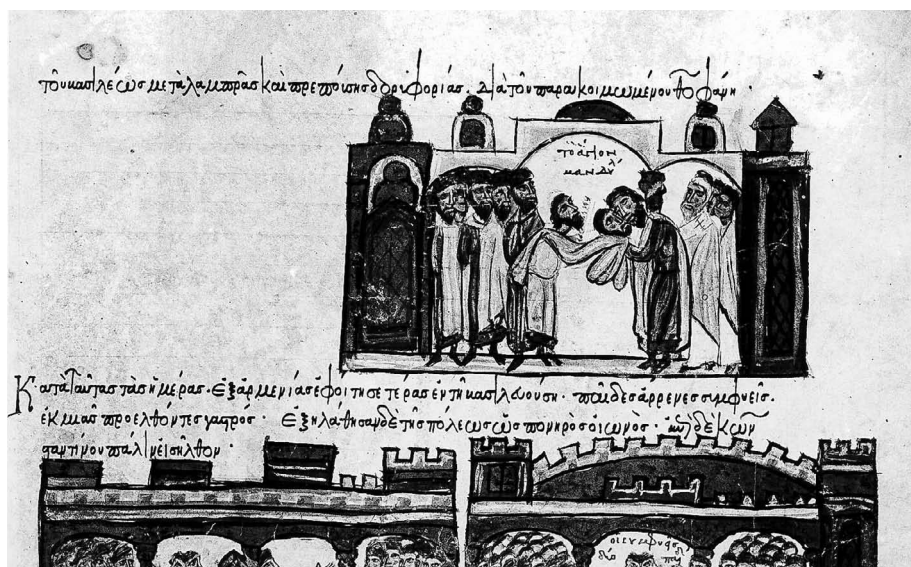 τοῦ βασιλέως μετὰ λαμπρᾶς καὶ πρεπούσης δορυφορίας. διὰ τοῦ παρακοιμωμένου θεοφάνη.
τὸ ἅγιον
μανδύλ
Κατὰ ταύτας τὰς ἡμέρας. ἐξ ἀρμενίας ἐφοίτησε τέρας ἐν τῆ βασιλευούση. παῖδες ἄρρενες συμφυεῖς.
ἐκ μιᾶς προελθόντες γαστρός. ἐξηλάθησαν δὲ τῆς πόλεως ὡς πονηρὸς οἰωνός. ἐπὶ δὲ κων
σταντίνου πάλιν εἰσῆλθον.
οἱ συμφυεῖς
δύο παῖδ